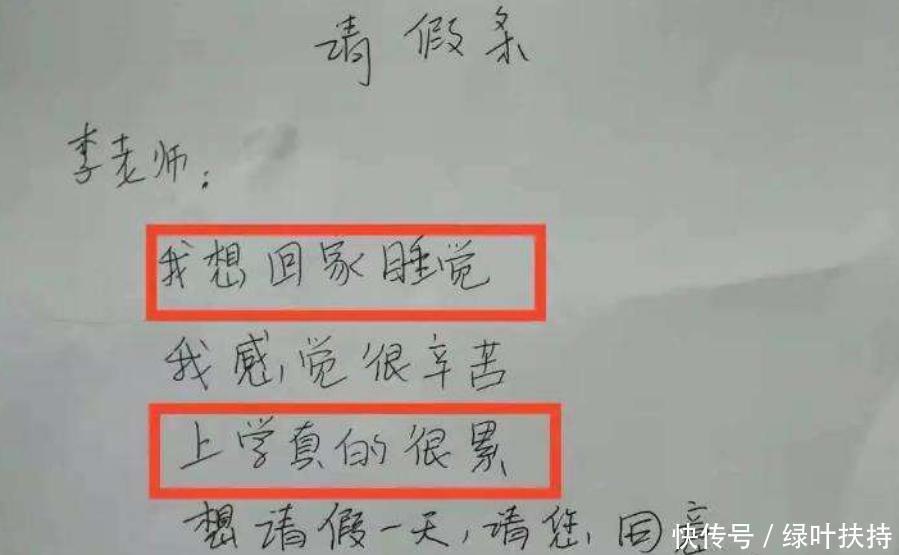 请假条
李老师：
我想回家睡觉
我感觉很辛苦
上学真的很累
想请假一天，请您同意
快传号/绿叶扶持